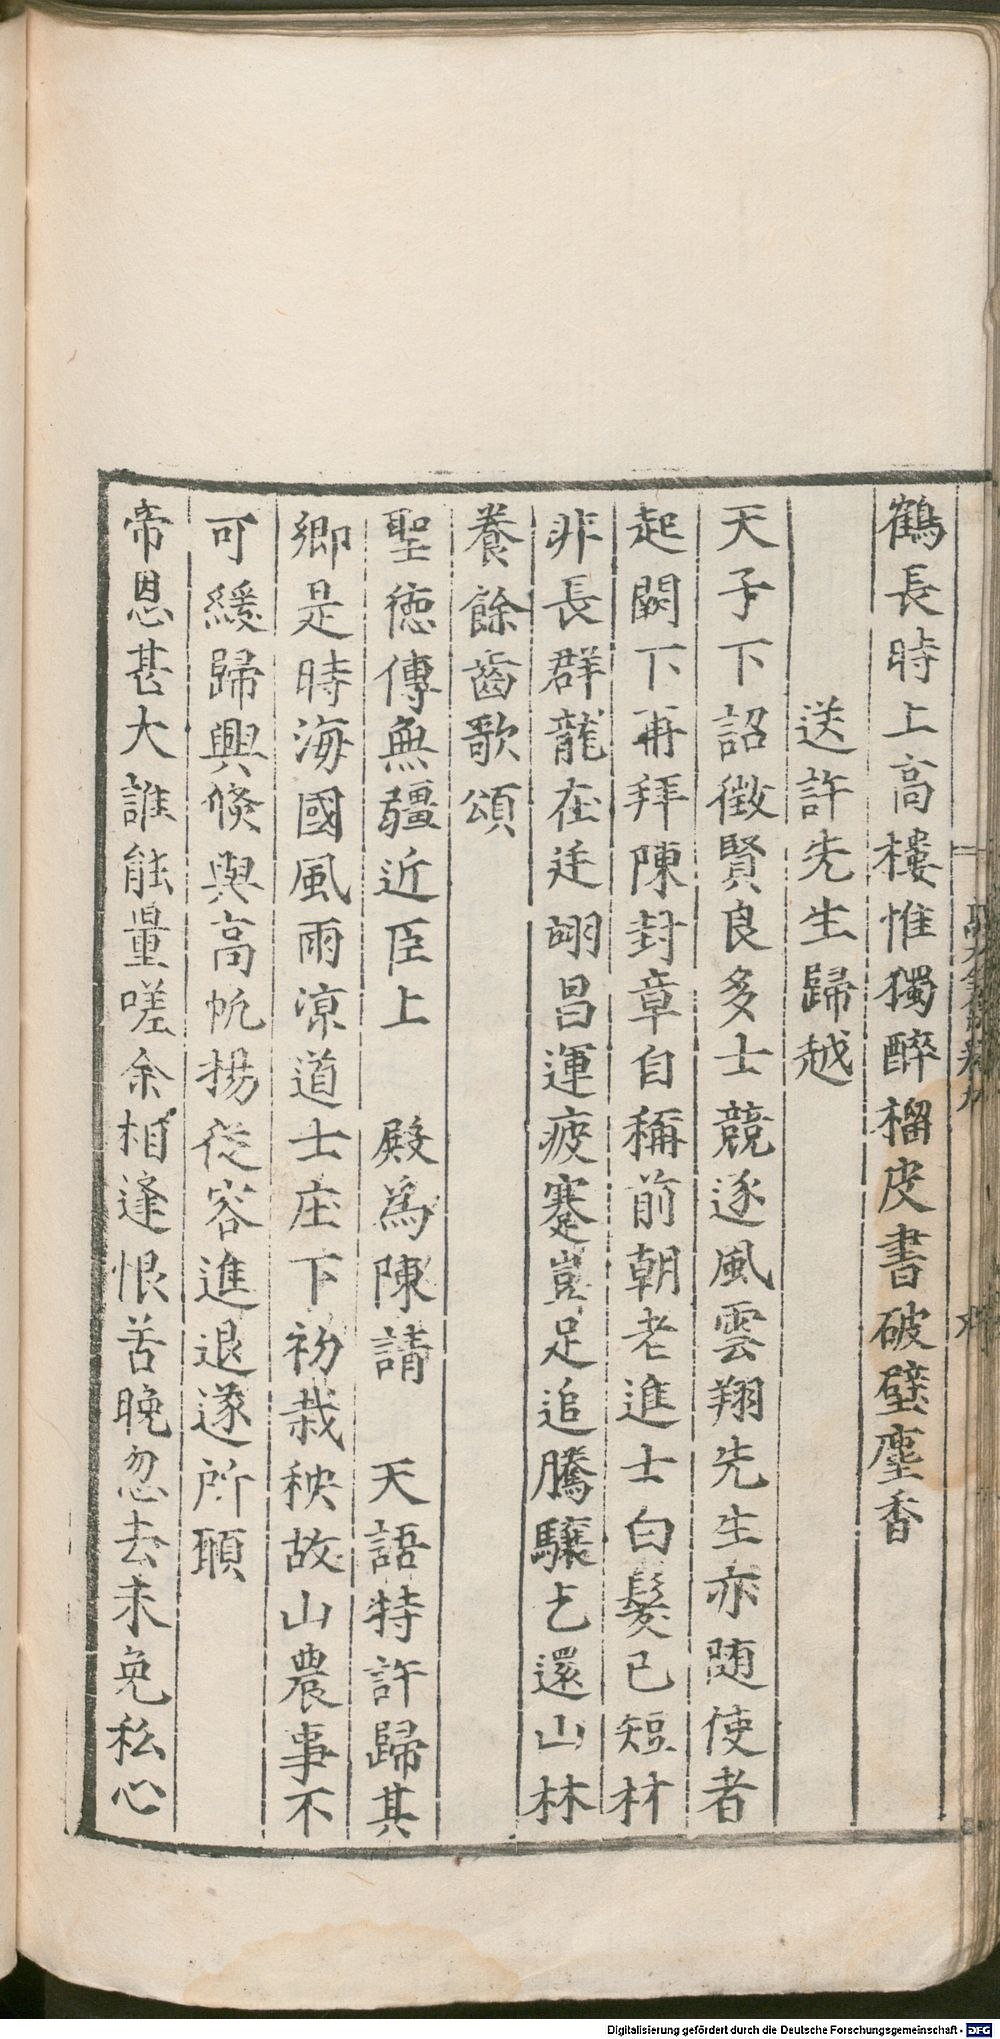 鶴長時上高樓惟獨醉榴皮書破壁塵香
送許先生歸越
天子下詔徵賢良多士競逐風雲翔先生亦随使者
起闕下再拜陳封章自稱前朝老進士白髮已短材
非長群龍在廷翊昌運疲蹇豈足追騰驤乞還山林
養餘齒歌頌
聖德傳無疆近臣上 殿為陳請 天語特許歸其
鄉是時海國風雨凉道士庄下初栽秧故山農事不
可緩歸興倐與高帆揚從容進退遂所願
帝恩甚大誰能量嗟余相逢恨苦晚忽去未免私心
Digitalisierung gefördert durch die Deutsche Forschungsgemeinschaft - DFG